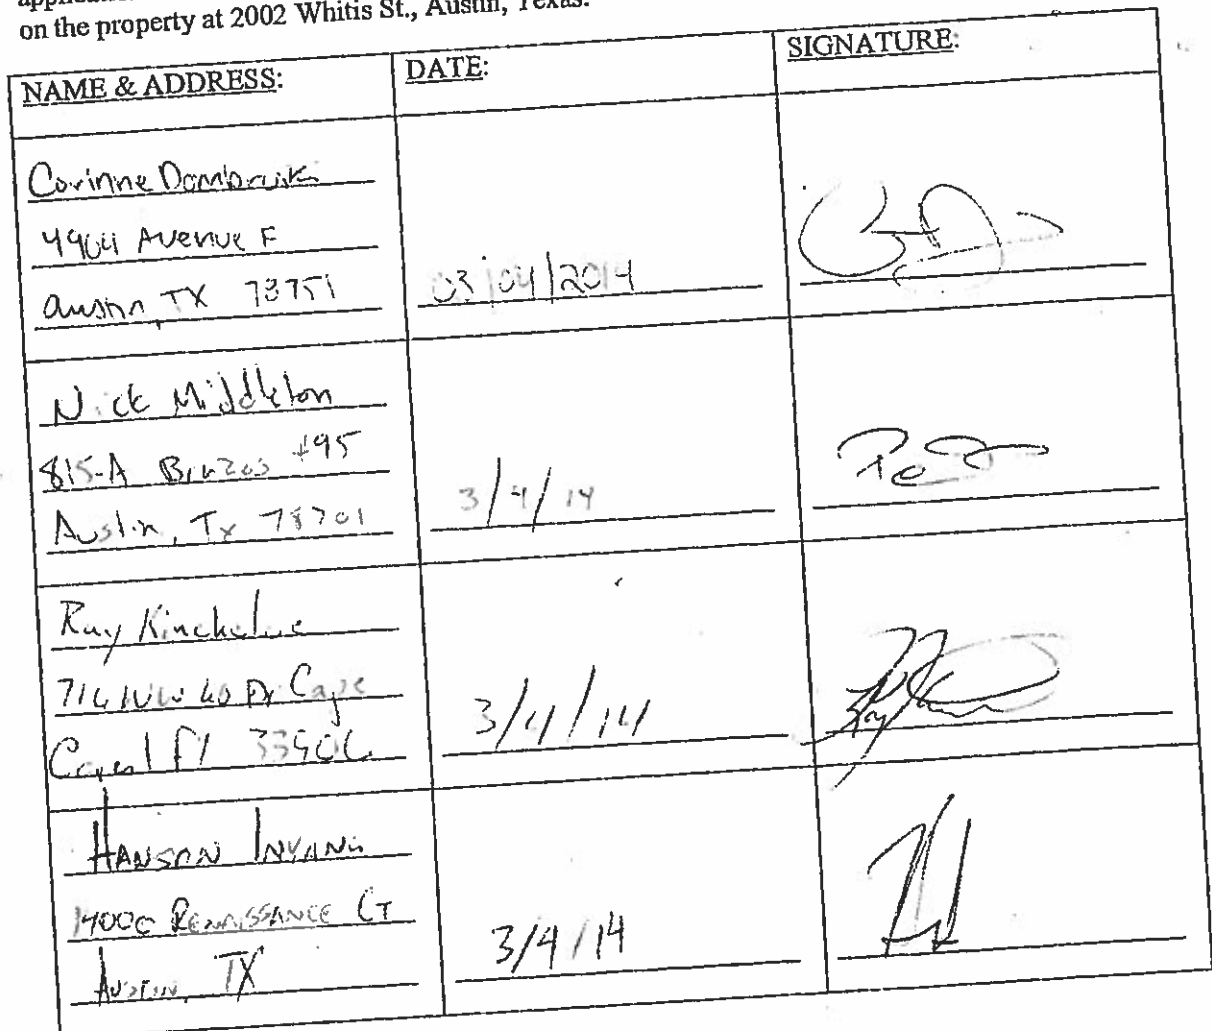 on the property at 2002 Whitis St., Austin, Texas.
NAME & ADDRESS: DATE: SIGNATURE:
Corinne
4904 Avenue F
Austin, TX 78751 03/04/2014
Nick Middleton
815-A Brazos #95
Austin, Tx 78701 3/4/14
Ray
716 NW Cape
Coral Fl 3/4/14
HANSON INYANG
RENAISSANCE CT
AUSTIN, TX 3/4/14